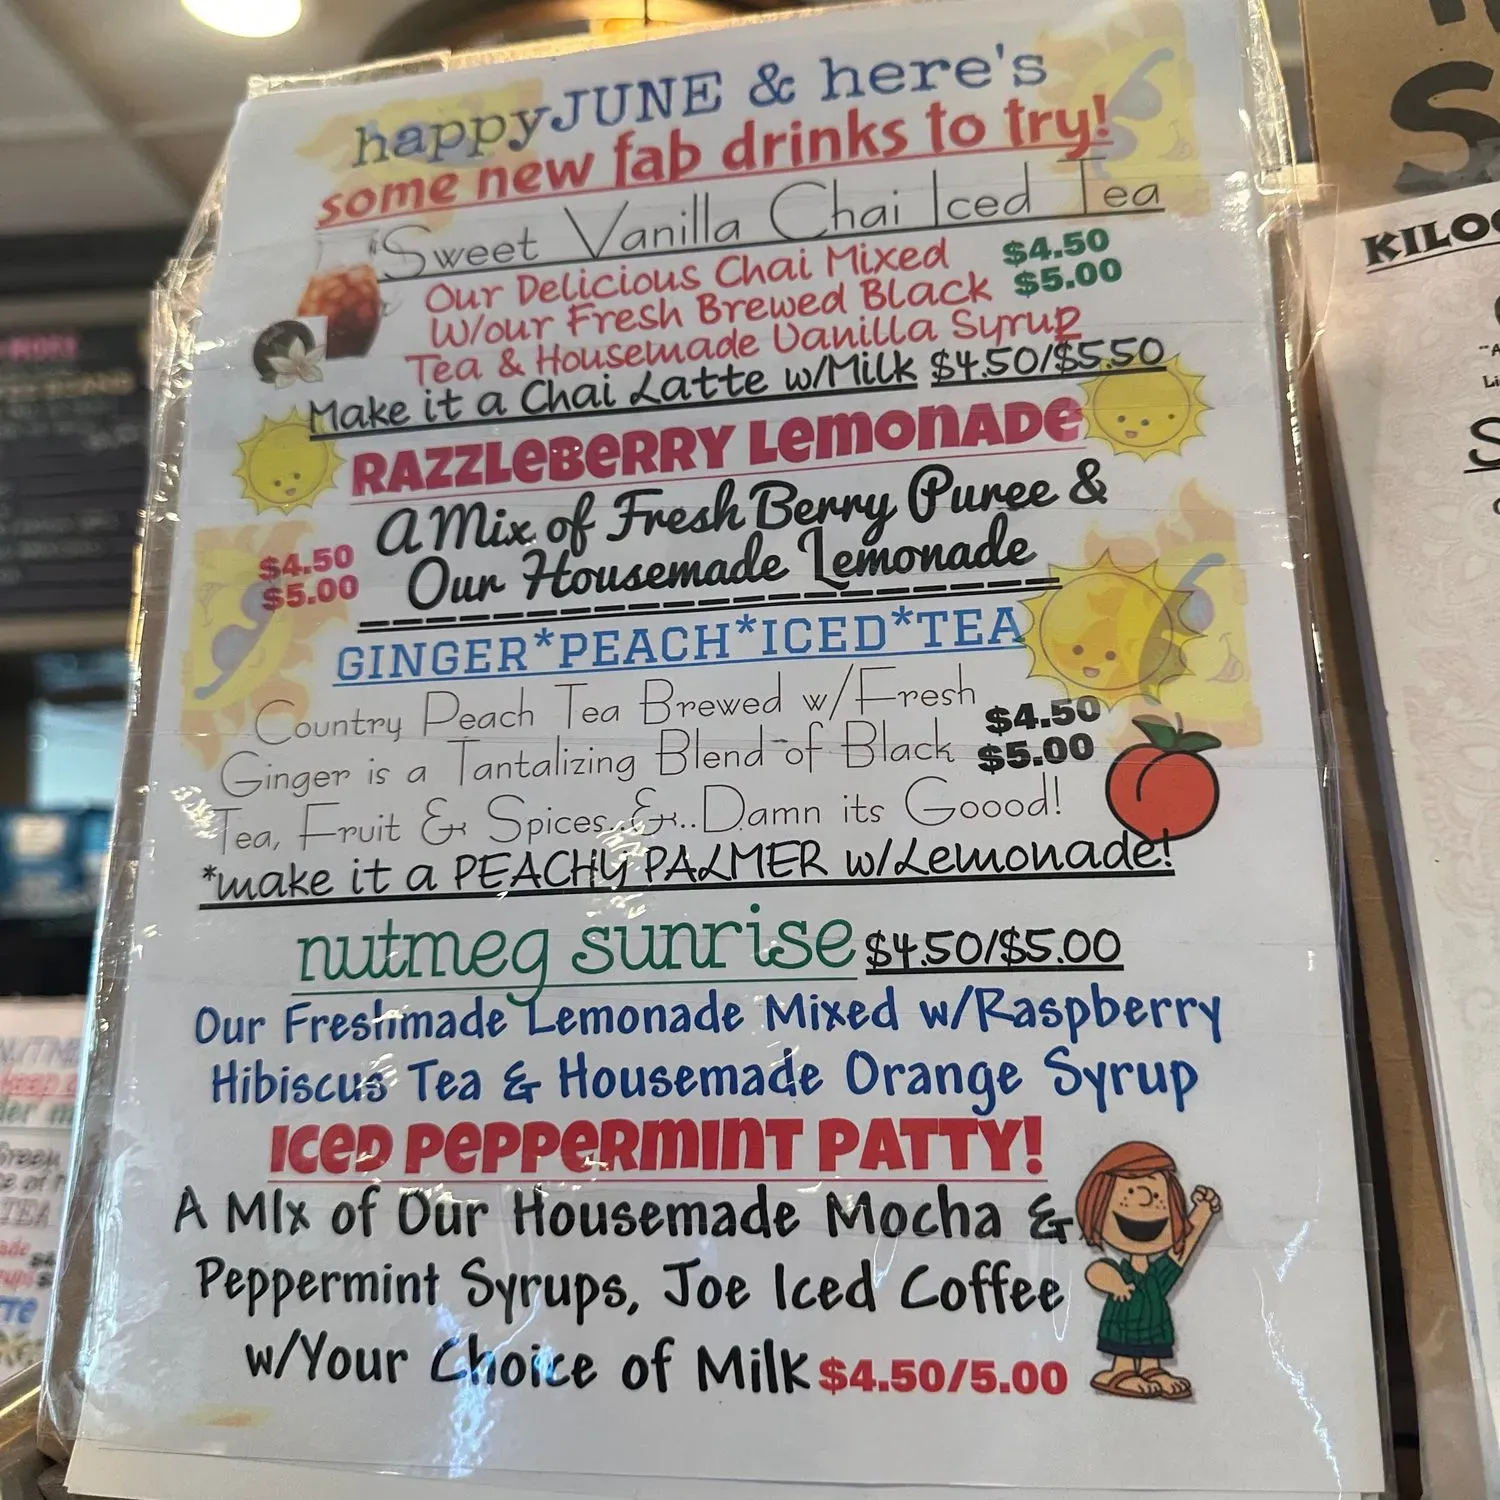 happyJUNE & here's
some new fab drinks to try!
Sweet Vanilla Chai Iced Tea
Our Delicious Chai Mixed $4.50
W/our Fresh Brewed Black $5.00
Tea & Housemade Vanilla Syrup
Make it a Chai Latte w/Milk $4.50/$5.50
RAZZLEBERRY LEMONADE
A Mix of Fresh Berry Puree &
$4.50
Our Housemade Lemonade
$5.00
GINGER*PEACH*ICED*TEA
Country Peach Tea Brewed w/Fresh $4.50
Ginger is a Tantalizing Blend of Black $5.00
Tea, Fruit & Spices..&..Damn its Goood!
*make it a PEACHY PALMER w/Lemonade!
nutmeg sunrise $4.50/$5.00
Our Freshmade Lemonade Mixed w/Raspberry
Hibiscus Tea & Housemade Orange Syrup
ICED PEPPERMINT PATTY!
A MIx of Our Housemade Mocha &
Peppermint Syrups, Joe Iced Coffee
w/Your Choice of Milk $4.50/5.00
KILO